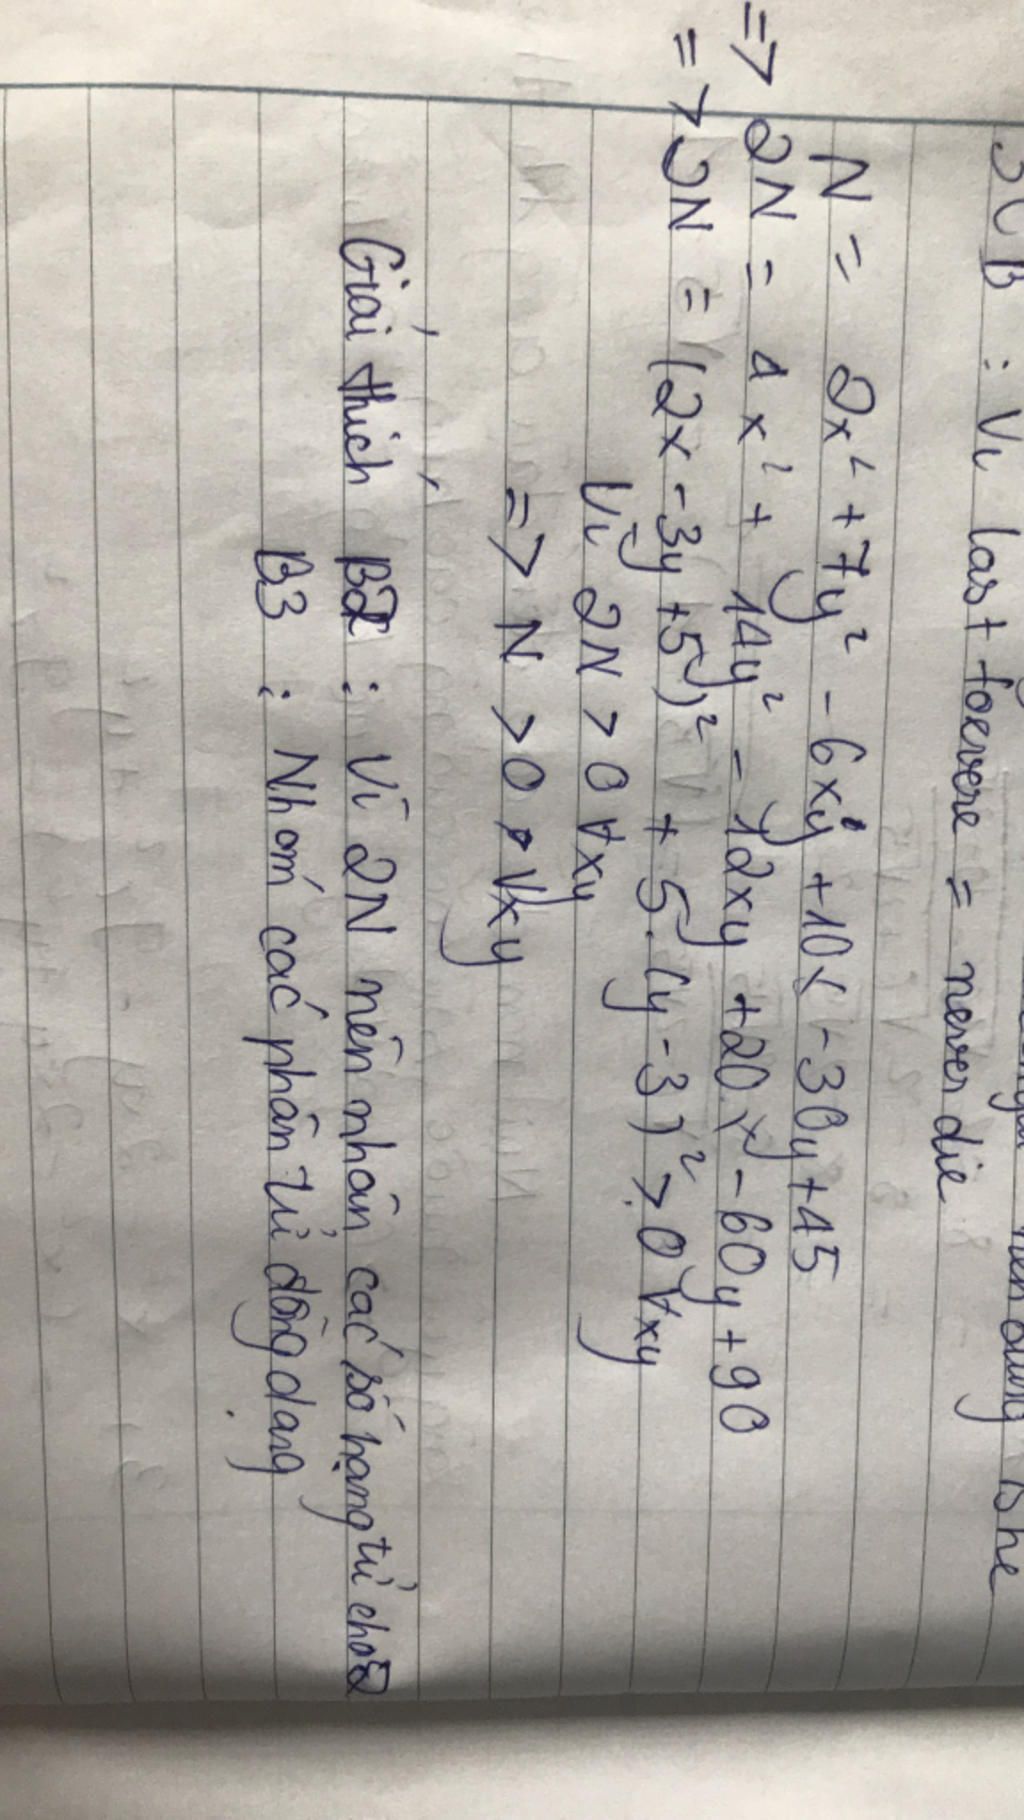 : Vì last foervere = never die
N = 2x² + 7y² - 6xy + 10x - 30y + 45
=> 2N = 4x² + 14y² - 12xy + 20x - 60y + 90
=> 2N = (2x - 3y + 5)² + 5.(y - 3)² > 0 ∀xy
Vì 2N > 0 ∀xy
=> N > 0 ∀xy
Giải thích B2 : Vì 2N nên nhân các số hạng tử cho 2
B3 : Nhóm các phần tử đồng dạng